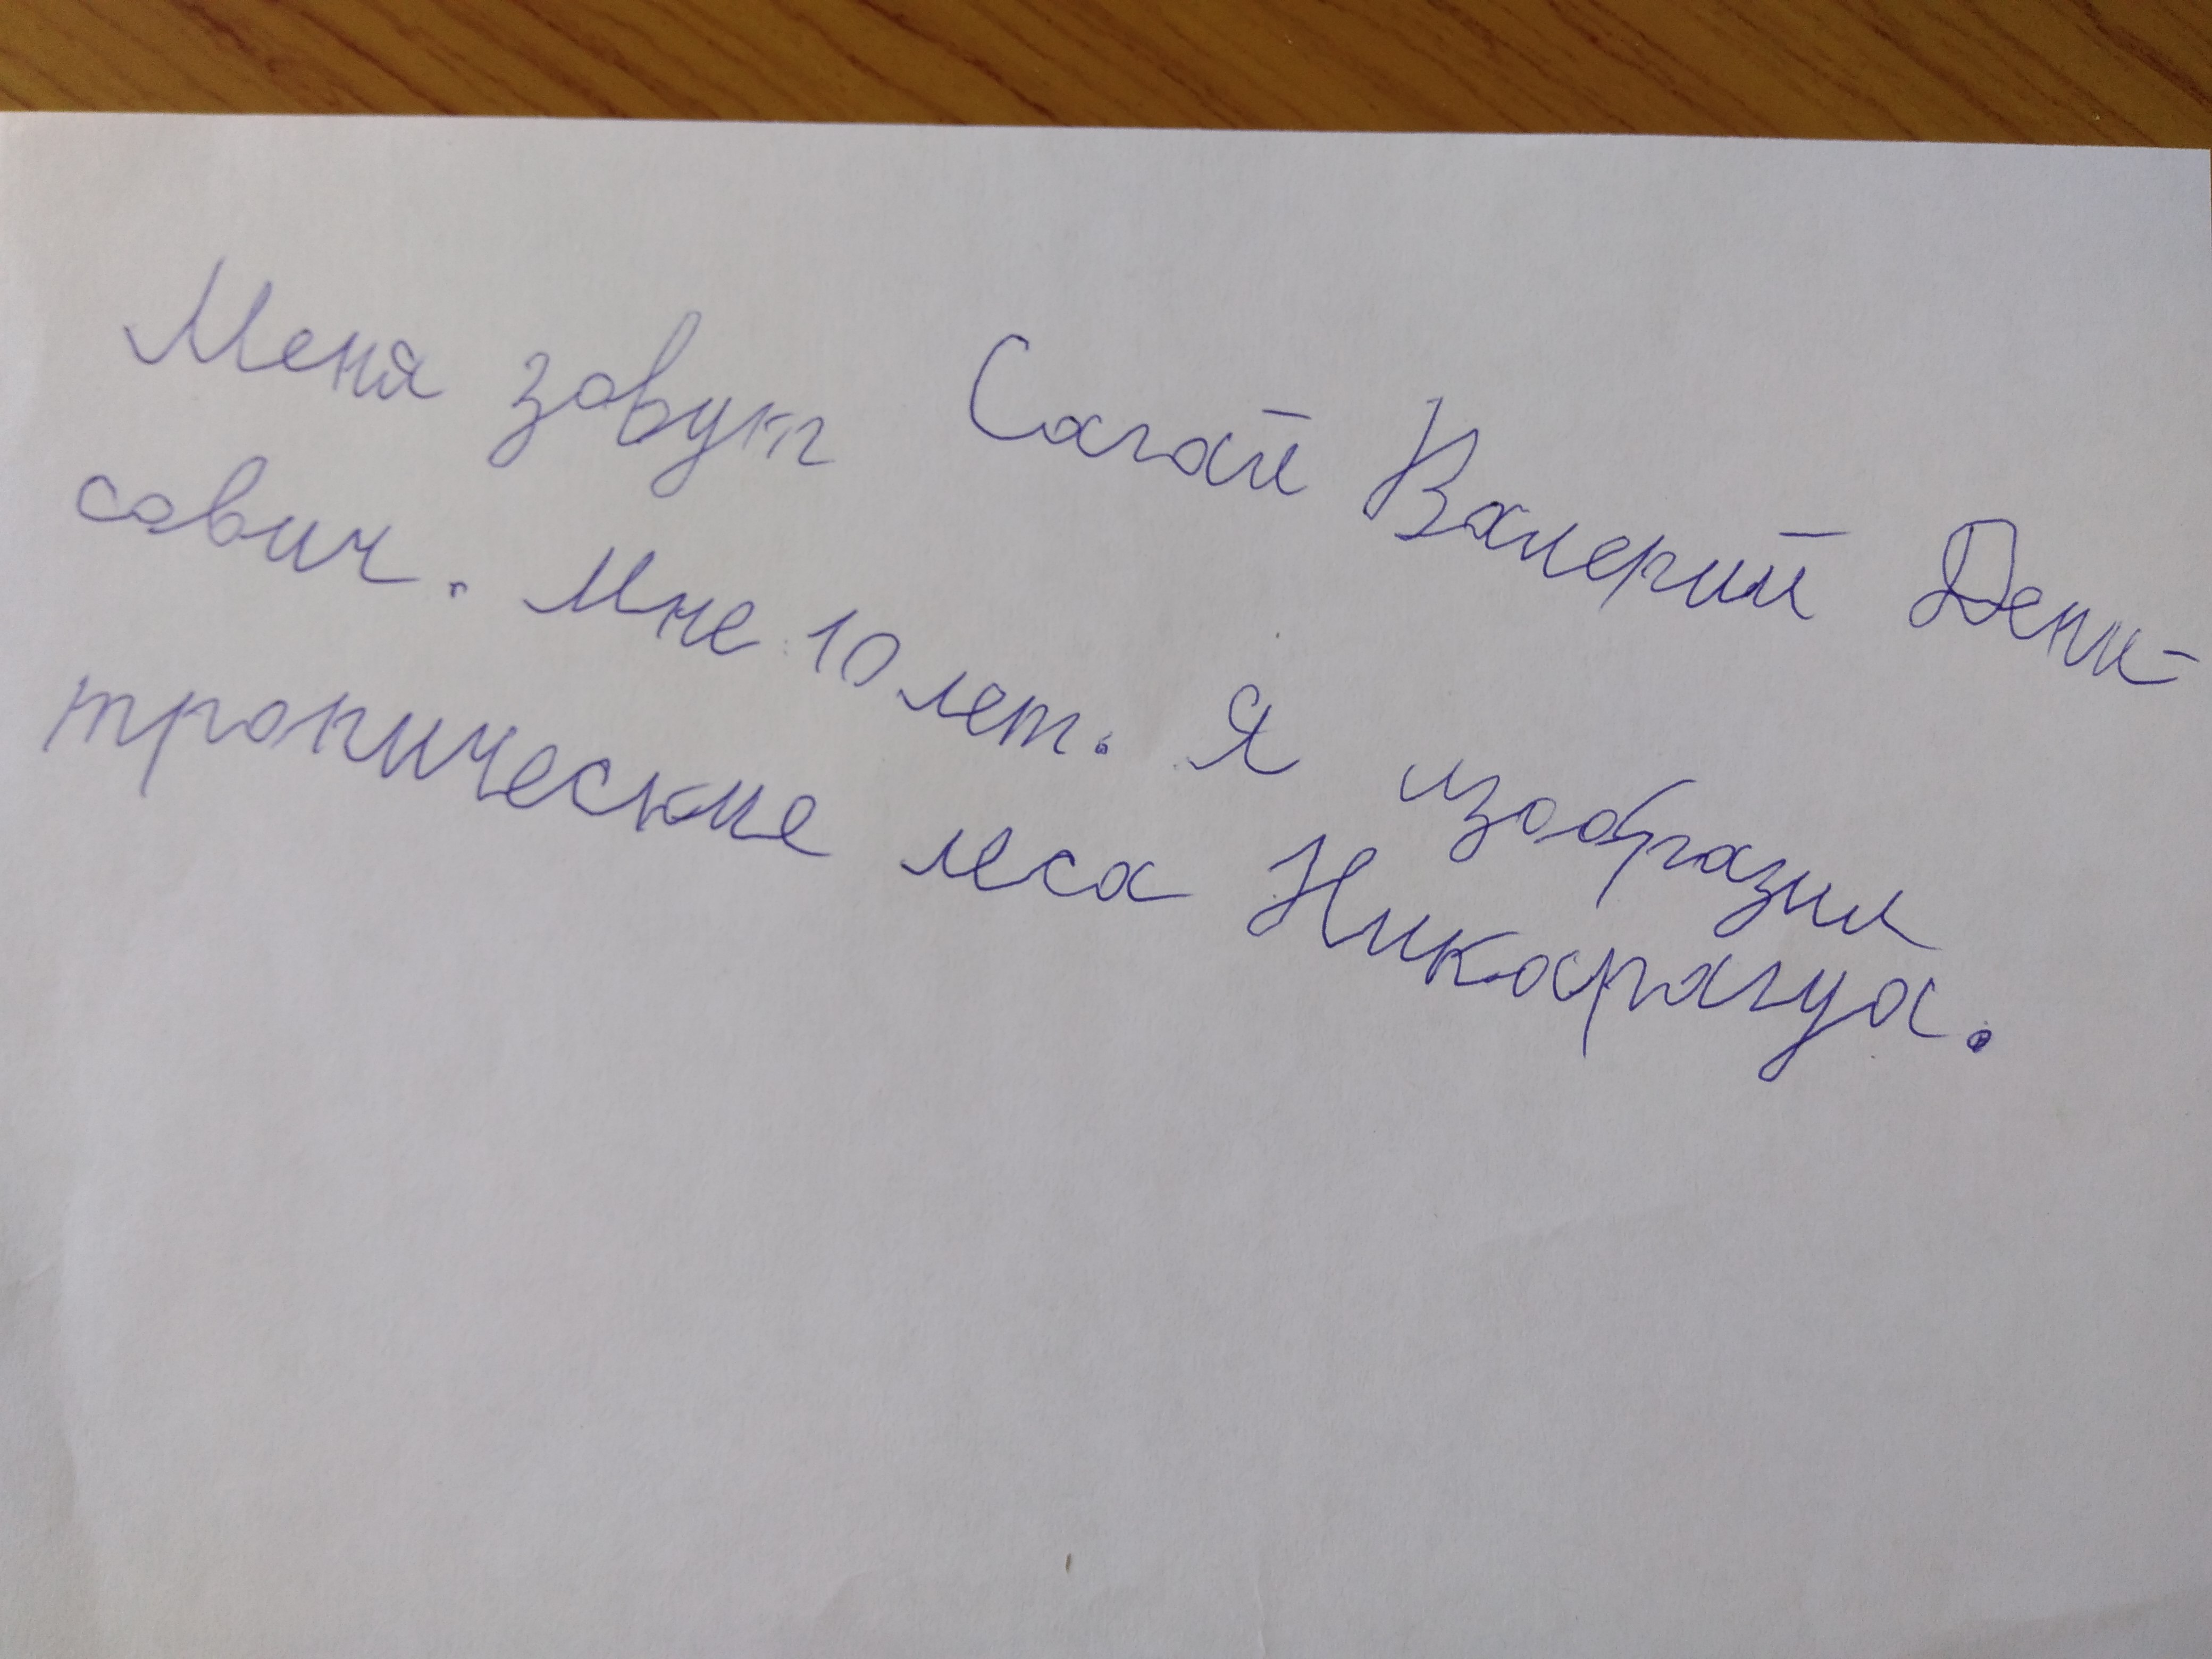 Меня зовут Сагай Валерий Дени-
сович. Мне 10 лет. Я изобразил
тропические леса Никарагуа.